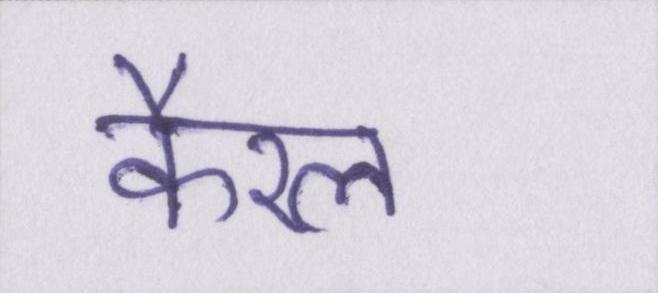 कैरल